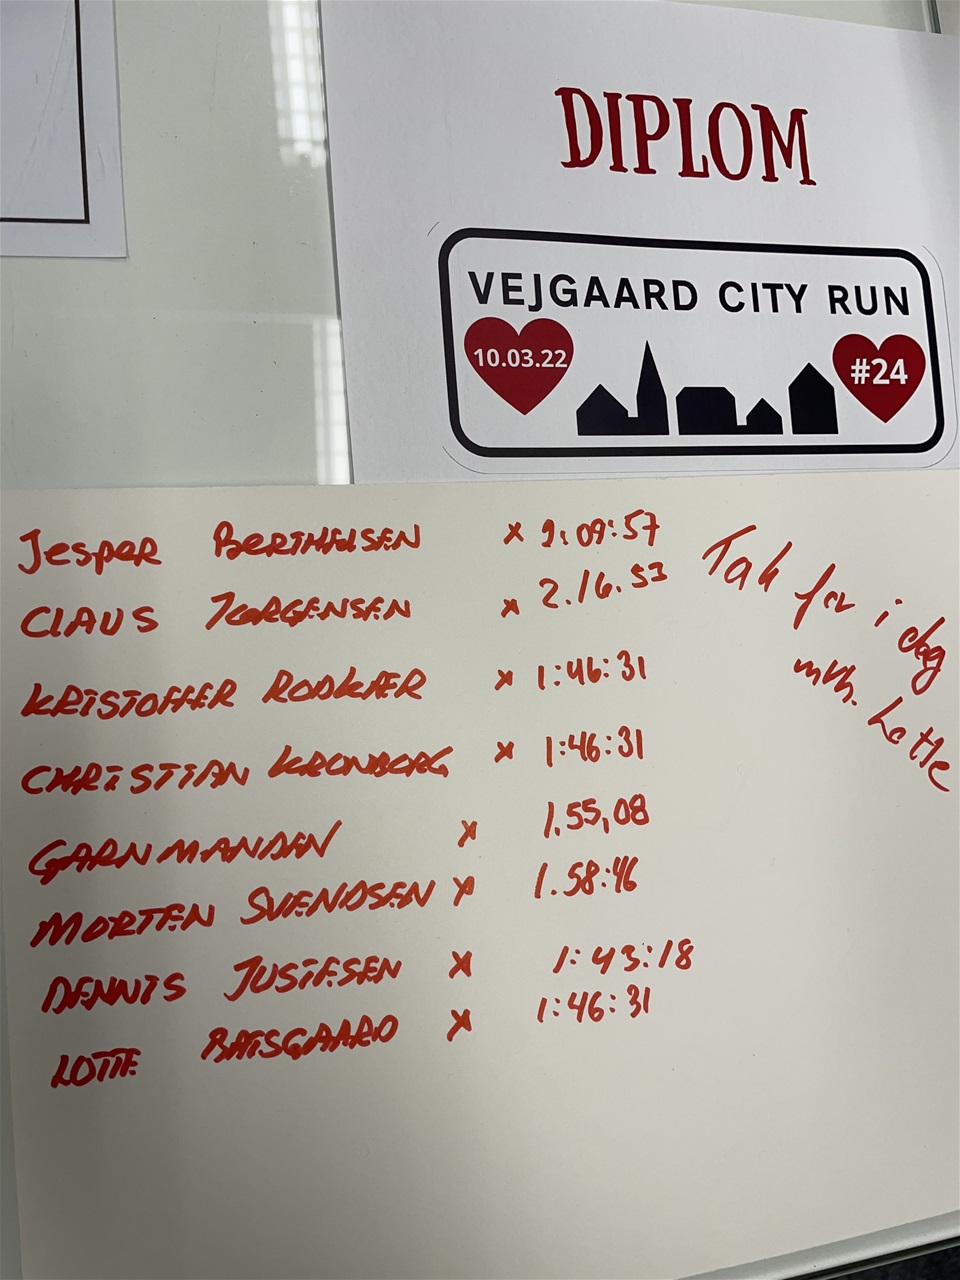 DIPLOM
VEJGAARD CITY RUN
10.03.22
#24
Jesper BERTHELSEN x 2:09:57
CLAUS JØRGENSEN x 2.16.53
KRISTOFFER RODKJÆR x 1:46:31
CHRISTIAN KRONBORG x 1:46:31
GARNMANDEN x 1.55,08
MORTEN SVENDSEN x 1.58:46
DENNIS JUSTESEN x 1:43:18
LOTTE BAISGAARD x 1:46:31
Tak for i dag
mvh. Lotte